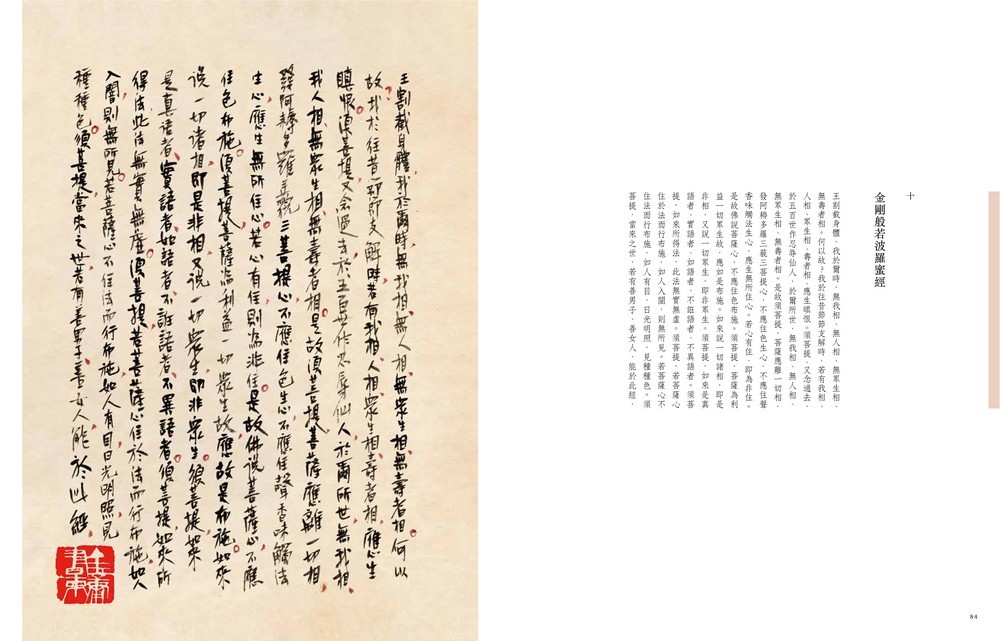 十
金剛般若波羅蜜經
王割截身體,我於爾時,無我相、無人相、無眾生相、
無壽者相。何以故?我於往昔節節支解時,若有我相、
人相、眾生相、壽者相,應生瞋恨。須菩提,又念過去,
於五百世作忍辱仙人,於爾所世,無我相、無人相、
無眾生相、無壽者相。是故須菩提,菩薩應離一切相,
發阿耨多羅三藐三菩提心,不應住色生心,不應住聲
香味觸法生心,應生無所住心。若心有住,即為非住。
是故佛說菩薩心,不應住色布施。須菩提,菩薩為利
益一切眾生故,應如是布施。如來說一切諸相,即是
非相。又說一切眾生,即非眾生。須菩提,如來是真
語者、實語者、如語者、不誑語者、不異語者。須菩
提,如來所得法,此法無實無虛。須菩提,若菩薩心
住於法而行布施,如人入闇,則無所見。若菩薩心不
住法而行布施,如人有目,日光明照,見種種色。須
菩提,當來之世,若有善男子、善女人,能於此經,
王割截身體我於爾時無我相無人相無眾生相無壽者相何以
故我於往昔節節支解時若有我相人相眾生相壽者相應生
瞋恨須菩提又念過去於五百世作忍辱仙人於爾所世無我相
我人相無眾生相無壽者相是故須菩提菩薩應離一切相
發阿耨多羅三藐三菩提心不應住色生心不應住聲香味觸法
生心應生無所住心若心有住則為非住是故佛說菩薩心不應
住色布施須菩提菩薩為利益一切眾生故應故是布施如來
說一切諸相即是非相又說一切眾生即非眾生須菩提如來
是真語者實語者如語者不誑語者不異語者須菩提如來所
得法此法無實無虛須菩提若菩薩心住於法而行布施如人
入闇則無所見若菩薩心不住法而行布施如人有目日光明照見
種種色須菩提當來之世若有善男子善女人能於此經
84